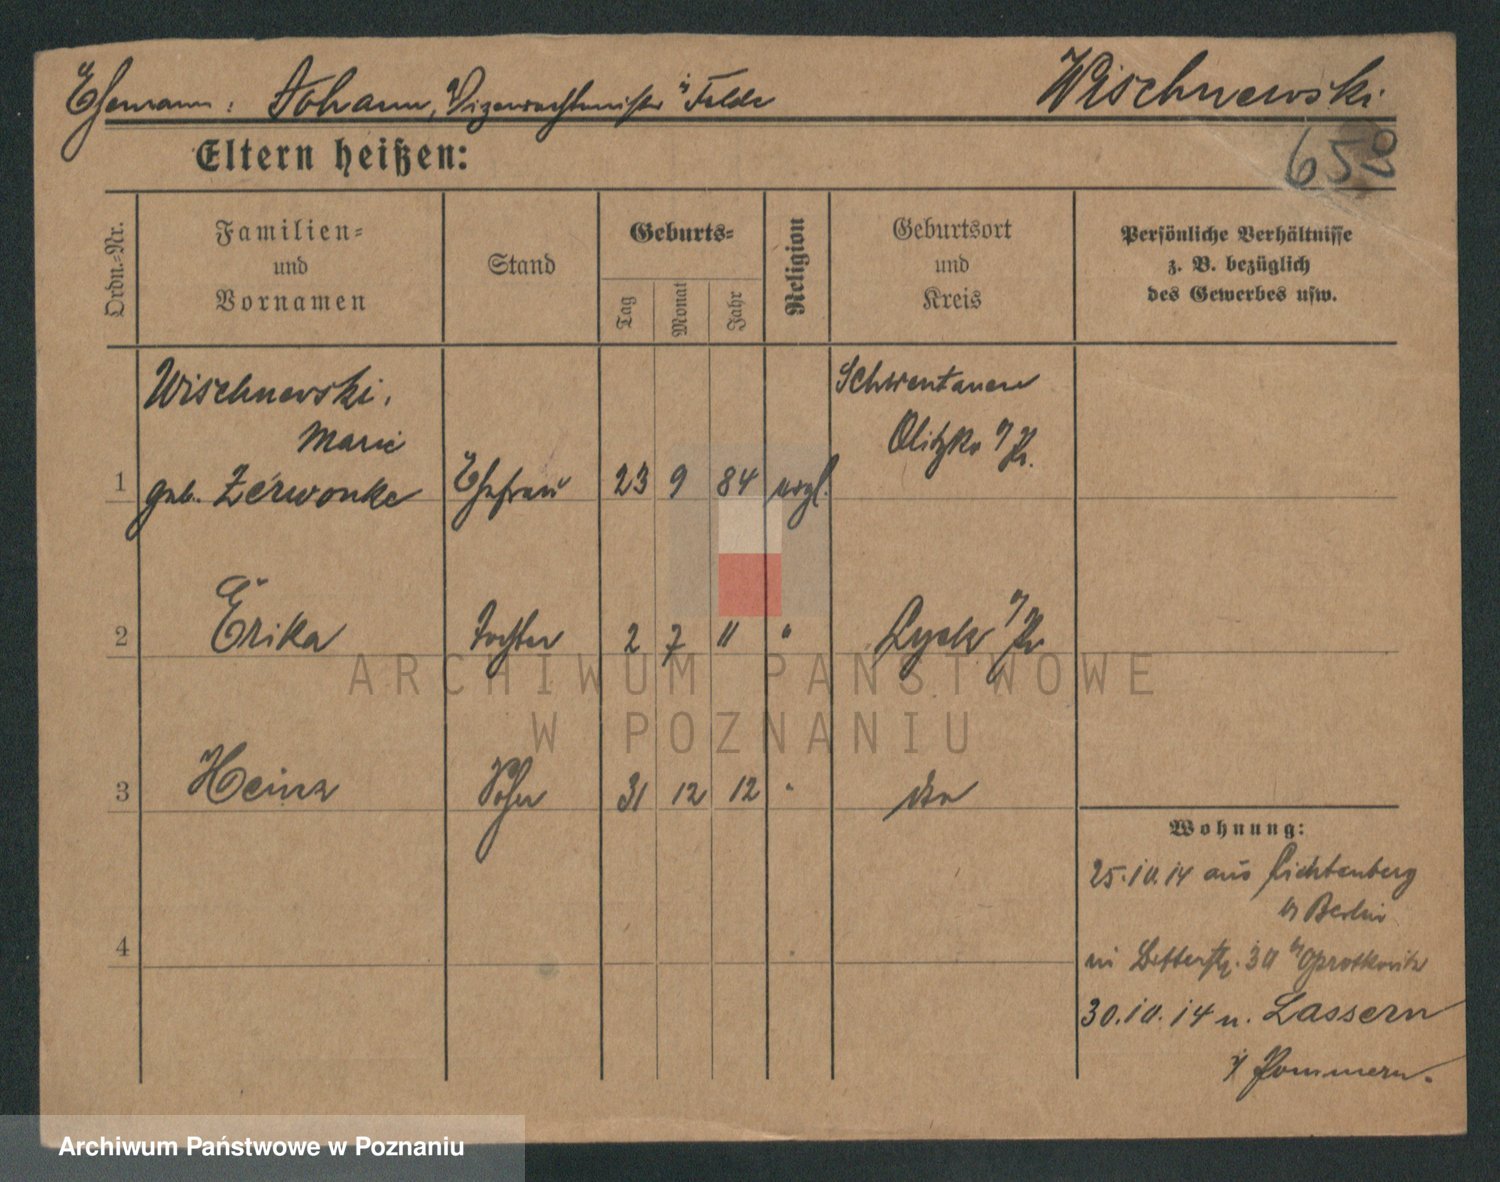 Ehemann: Johann, Vizewachtmeister i/ Felde Wischnewski
658
Eltern heißen:
Ordn.-Nr.
Familien-
und
Vornamen
Stand
Geburts-
Tag
Monat
Jahr
Religion
Geburtsort
und
Kreis
Persönliche Verhältnisse
z. B. bezüglich
des Gewerbes usw.
Wischnewski, Schwentainen
Marie Olitzko /Pr.
1 geb. Zerwonke Ehefrau 23 9 84 evgl.
2 Erika Tochter 2 7 11 " Lyck /Pr
3 Heinz Sohn 31 12 12 " dto
Wohnung:
25.10.14 aus Lichtenberg
b/ Berlin
4
ni 30 b/
30.10.14 n. Lassern
i/ Pommern.
ARCHIWUM PAŃSTWOWE
W POZNANIU
Archiwum Państwowe w Poznaniu